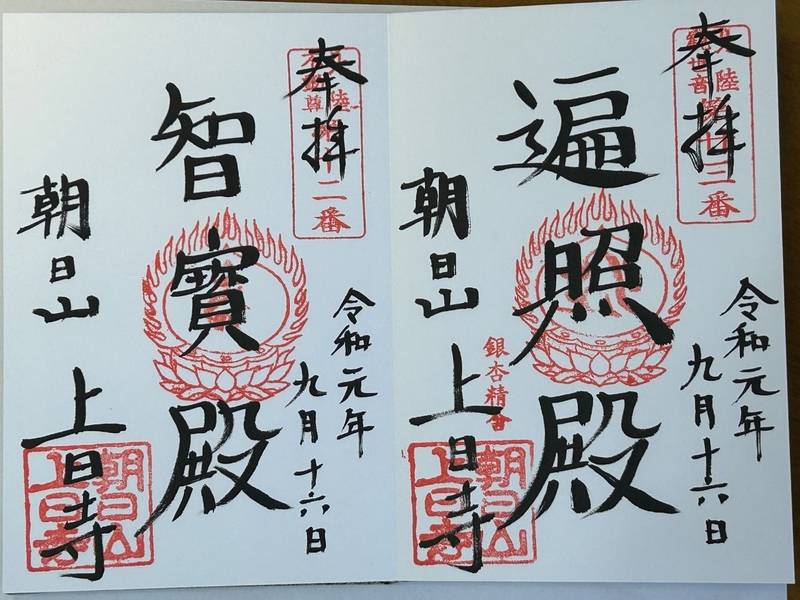 奉拝
十三番
令和元年
九月十六日
遍照殿
銀杏精舎
朝日山
上日寺
朝日山
上日寺
奉拝
十二番
令和元年
九月十六日
智寳殿
朝日山
上日寺
朝日山
上日寺